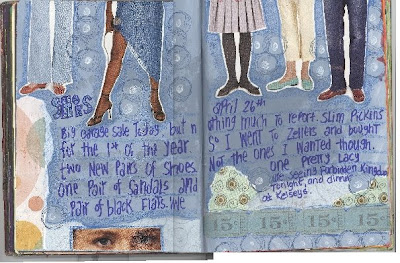 Big garage sale Today, but n
for the 1st of the year
two New Pairs of Shoes.
One Pair of Sandals and
Pair of black Flats. We
April 26th
othing much to report. Slim Pickins
So I went to Zellers and bought
Not the ones I wanted though.
one pretty lacy
are seeing Forbidden Kingdom
Tonight, and dinner
at Kelseys.
15¢ 15¢ 15¢ 15¢